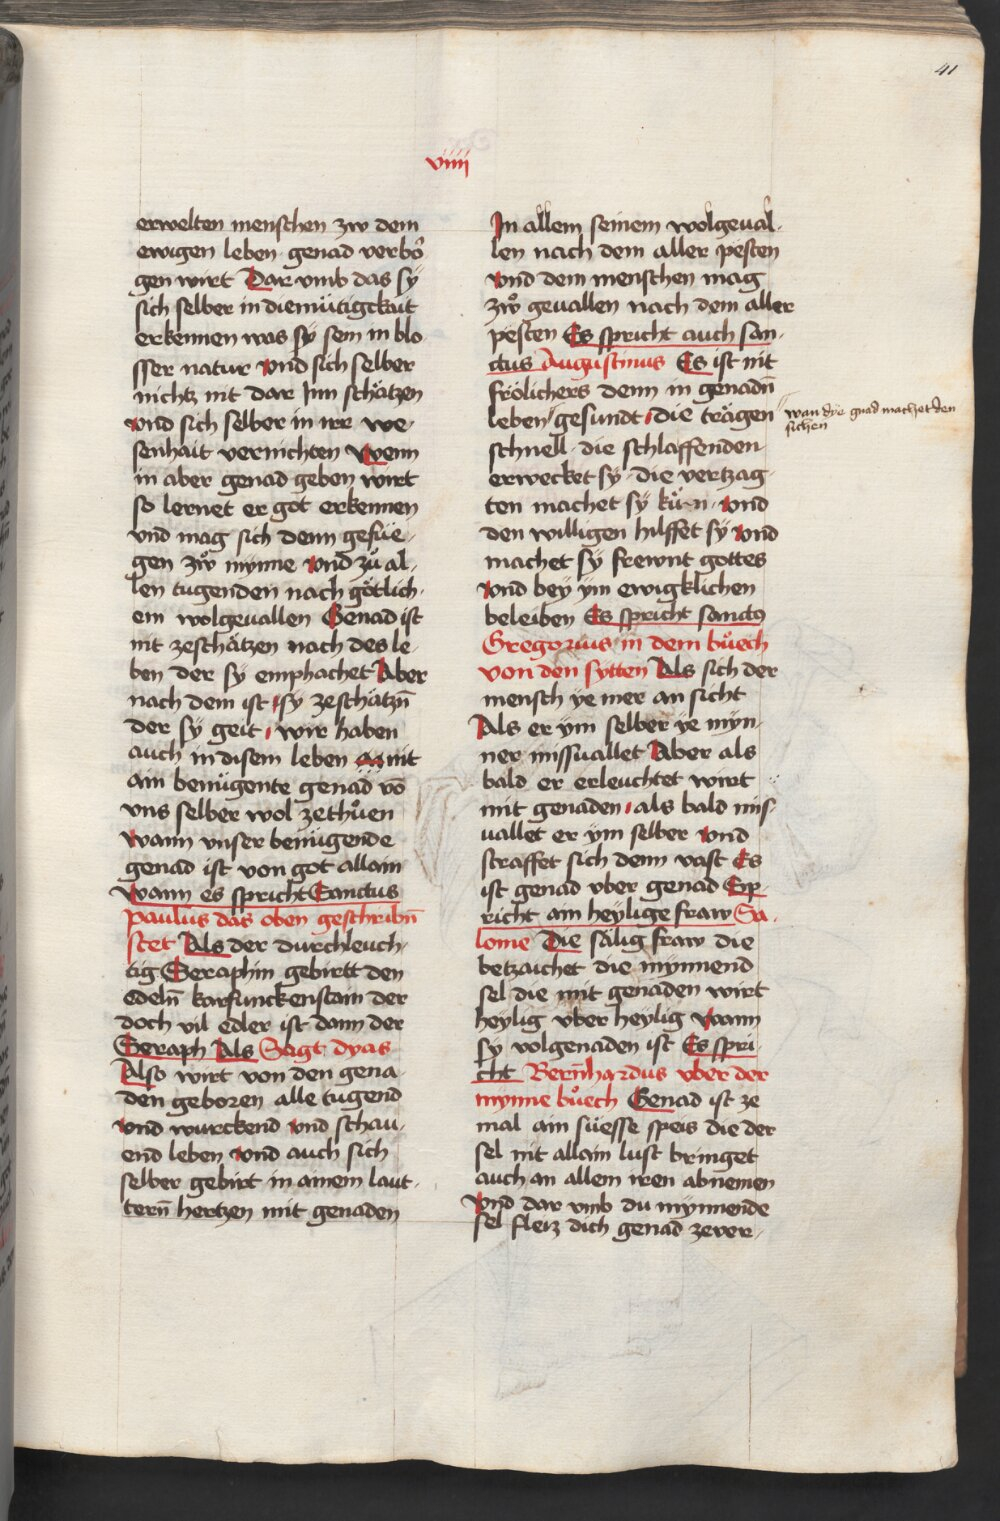 41
viiij
erwelten menschen zw dem
ewigen leben · genad verbo᷑
gen wirt Dar vmb das sÿ
sich selber in diemütigckait
erkennen was sÿ sein in blo
sser natur vnd sich selber
nichtz nit dar Inn schätzen
vnd sich selber in irr we-
senhait vernichten Wenn
in aber genad geben wirt
so lernet er got erkennen
vnd mag sich denn gefüe-
gen zwͦ mÿnne vnd zuͦ al-
len tugenden nach götlich-
em wolgeuallen Genad ist
nit zeschätzen nach des le-
ben der sÿ emphachet Aber
nach dem ist sÿ zeschätzn̄
der sÿ geit wir haben
auch in disem leben nit
ain benügente genad vō
vns selber wol zethuͦen
wann vnser benügende
genad ist von got allain
Wann es spricht Sanctus
paulus das oben geschribn̄
stet Als der durchleuch-
tig Seraphin gebirtt den
edeln̄ karfunckenstain der
doch vil edler ist dann der
Seraph Als Sagt dyas
Also wirt von den gena-
den geboren alle tugend
vnd wurckend vnd schau-
end leben vnd auch sich
selber gebirt in ainem laut-
tern̄ hertzen mit genaden
In allem seinem wolgeual-
len nach dem aller pesten
vnd dem menschen mag
zwͦ geuallen nach dem aller
pesten Es spricht auch san-
ctus Augustinus Es ist nit
frölichers denn in genadn̄
leben gesundt die trägen
wan dÿe gnad machet den
sichen
schnell · die schlaffenden
erwecket sÿ · die vertzag-
ten machet sÿ küen · vnd
den willigen hilffet sÿ vnd
machet sÿ frewnt gottes
vnd beÿ ÿm ewigklichen
beleiben Es spricht sanctꝰ
Gregorius in dem buͦech
von den sytten Als sich der
mensch ÿe mer an sicht
Als er ÿm selber ÿe mÿn-
ner missuallet Aber als
bald er erleuchtet wirt
mit genaden als bald mis-
uallet er ÿm selber vnd
straffet sich denn vast Es
ist genad vber genad Sp-
richt ain heÿlige fraw Sa-
lome Die sälig fraw die
betzaichet die mÿnnend
sel die mit genaden wirt
heÿlig vber heÿlig Wann
sÿ volgenaden ist Es spri-
cht Bern̄hardus vber der
mÿnne buͦech Genad ist ze
mal ain süesse speis die der
sel nit allain lust bringet
auch an allem iren abnemen
Vnd dar vmb du mÿnnende
sel fleiz dich genad zewer-